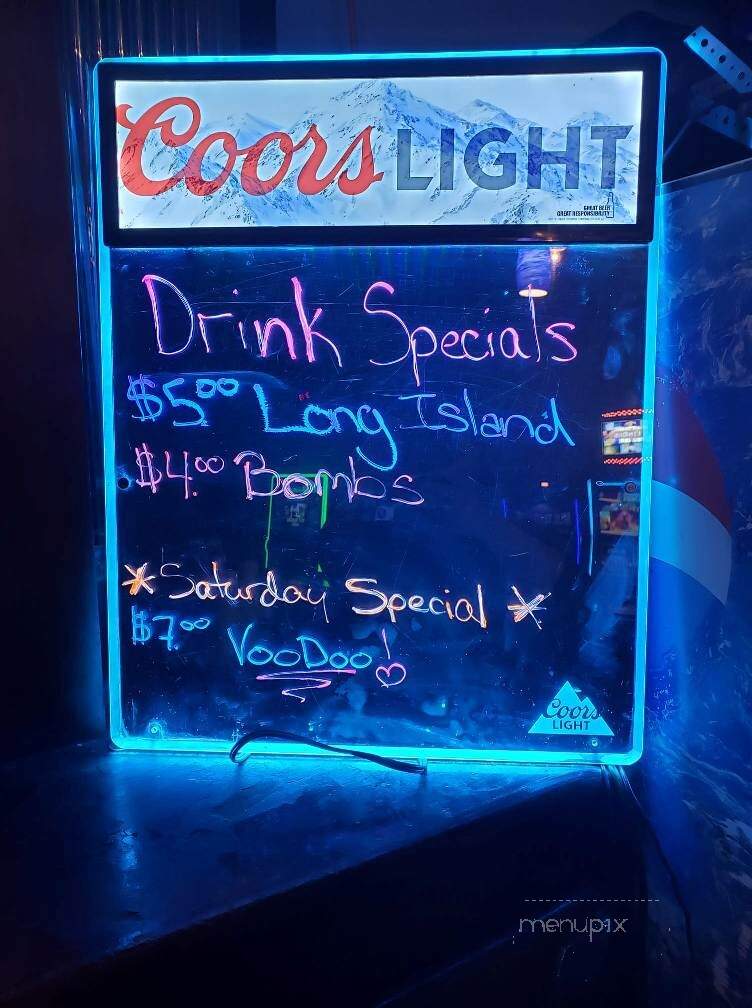 Coors LIGHT
GREAT BEER
GREAT RESPONSIBILITY
Drink Specials
$5.00 Long Island
$4.00 Bombs
*Saturday Special*
$7.00 VooDoo!
Coors
LIGHT
menupix